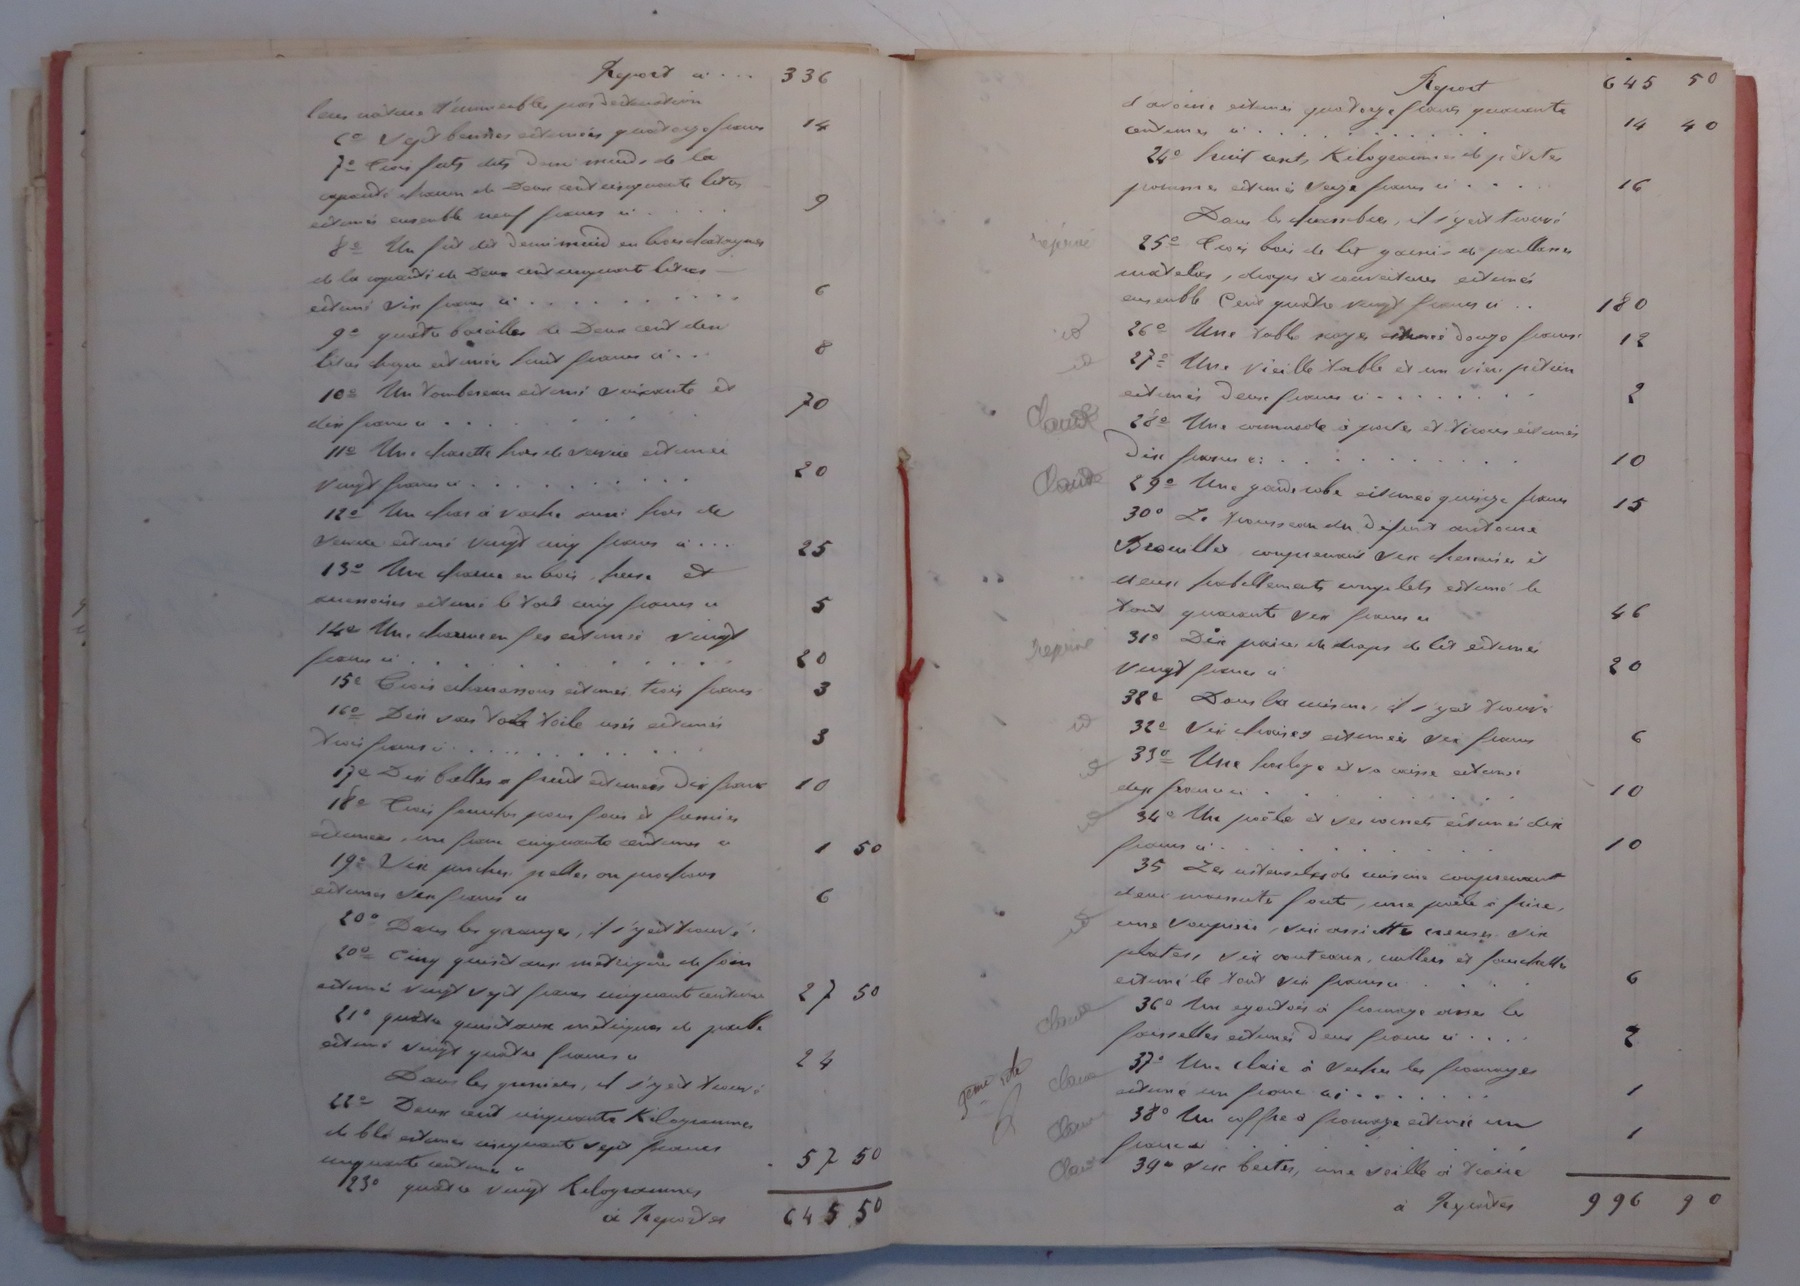 Report à ... 336
leur nature d'immeubles par destination
6º Sept bennes estimées quatorze francs 14
7º Trois futs dits demi muids de la
capacité chacun de Deux cent cinquante litres
estimés ensemble neuf francs ci . . . . 9
8º Un fût dit demi muid en bois chataignier
de la capacité de Deux cent cinquante litres
estimé six francs ci . . . . . . . . . . 6
9º quatre barailles de Deux cent deux
litres chaque estimées huit francs ci . . . 8
10º Un tombereau estimé soixante et
dix francs ci . . . . . . . 70
11º Une charette hors de service estimée
vingt francs ci . . . . . . . . . . 20
12º Un char à vache aussi hors de
service estimé vingt cinq francs ci . . . 25
13º Une charrue en bois, herse et
accessoires estimé le tout cinq francs ci 5
14º Une charrue en fer estimée vingt
francs ci . . . . . . . . . . . 20
15º Trois estimés trois francs 3
16º Dix sacs toile usés estimés
trois francs ci . . . . . . . . . 3
17º Dix balles à fruit estimées Dix francs 10
18º Trois fourches pour foin et fumier
estimées un franc cinquante centimes ci 1 50
19º Six pioches pelles ou piochons
estimés six francs ci 6
20º Dans les granges, il s'y est trouvé :
20º Cinq quintaux métriques de foin
estimés vingt sept francs cinquante centimes 27 50
21º quatre quintaux métriques de paille
estimé vingt quatre francs ci 24
Dans les greniers, il s'y est trouvé :
22º Deux cent cinquante Kilogrammes
de blé estimés cinquante sept francs
cinquante centimes ci 57 50
23º quatre vingt Kilogrammes
à Reporter 645 50
Report 645 50
d'avoine estimés quatorze francs quarante
centimes ci . . . . . . . . . . . 14 40
24º huit cents Kilogrammes de petites
pommes estimés seize francs ci . . . . . 16
Dans les chambres, il s'y est trouvé
reprise 25º Trois bois de lit garnis de paillasses
matelas, draps et couvertures estimés
ensemble Cent quatre vingt francs ci . . 180
id 26º Une table noyer estimée douze francs 12
id 27º Une vieille table et un vieux pétrin
estimés deux francs ci . . . . . . . . 2
Claude 28º Une commode à portes et tiroirs estimés
Dix francs ci . . . . . . . . . . . 10
Claude 29º Une garde robe estimée quinze francs 15
30º Le trousseau du défunt antoine
comprenant six chemises et
deux habillements complets estimé le
tout quarante six francs ci 46
reprise 31º Dix paires de draps de lit estimées
vingt francs ci 20
32º Dans la cuisine, il s'y est trouvé
id 32º Six chaises estimées six francs 6
id 33º Une horloge et sa caisse estimée
dix francs ci . . . . . . . . . . . 10
id 34º Un poêle et ses cornets estimés dix
francs ci . . . . . . . . . . . 10
35 Les ustensiles de cuisine comprenant
deux marmites fonte, une poêle à frire,
id une soupière, six assiettes creuses six
plates, six couteaux, cuillers et fourchettes
estimé le tout six francs ci . . . . 6
Claude 36º Un egouttoir à fromage avec les
faisselles estimés deux francs ci . . . . 2
Claude 37º Une claie à sécher les fromages
estimée un franc ci . . . . . . . 1
Claude 38º Un coffre à fromage estimé un
franc ci . . . . . . 1
Claude 39º six bertes, une seille à traire
à Reporter 996 90